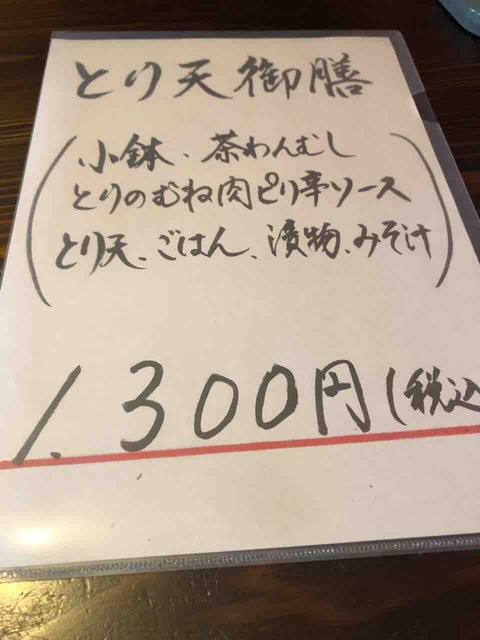 とり天御膳
(小鉢、茶わんむし
とりのむね肉ピリ辛ソース
とり天、ごはん、漬物、みそ汁)
1.300円(税込